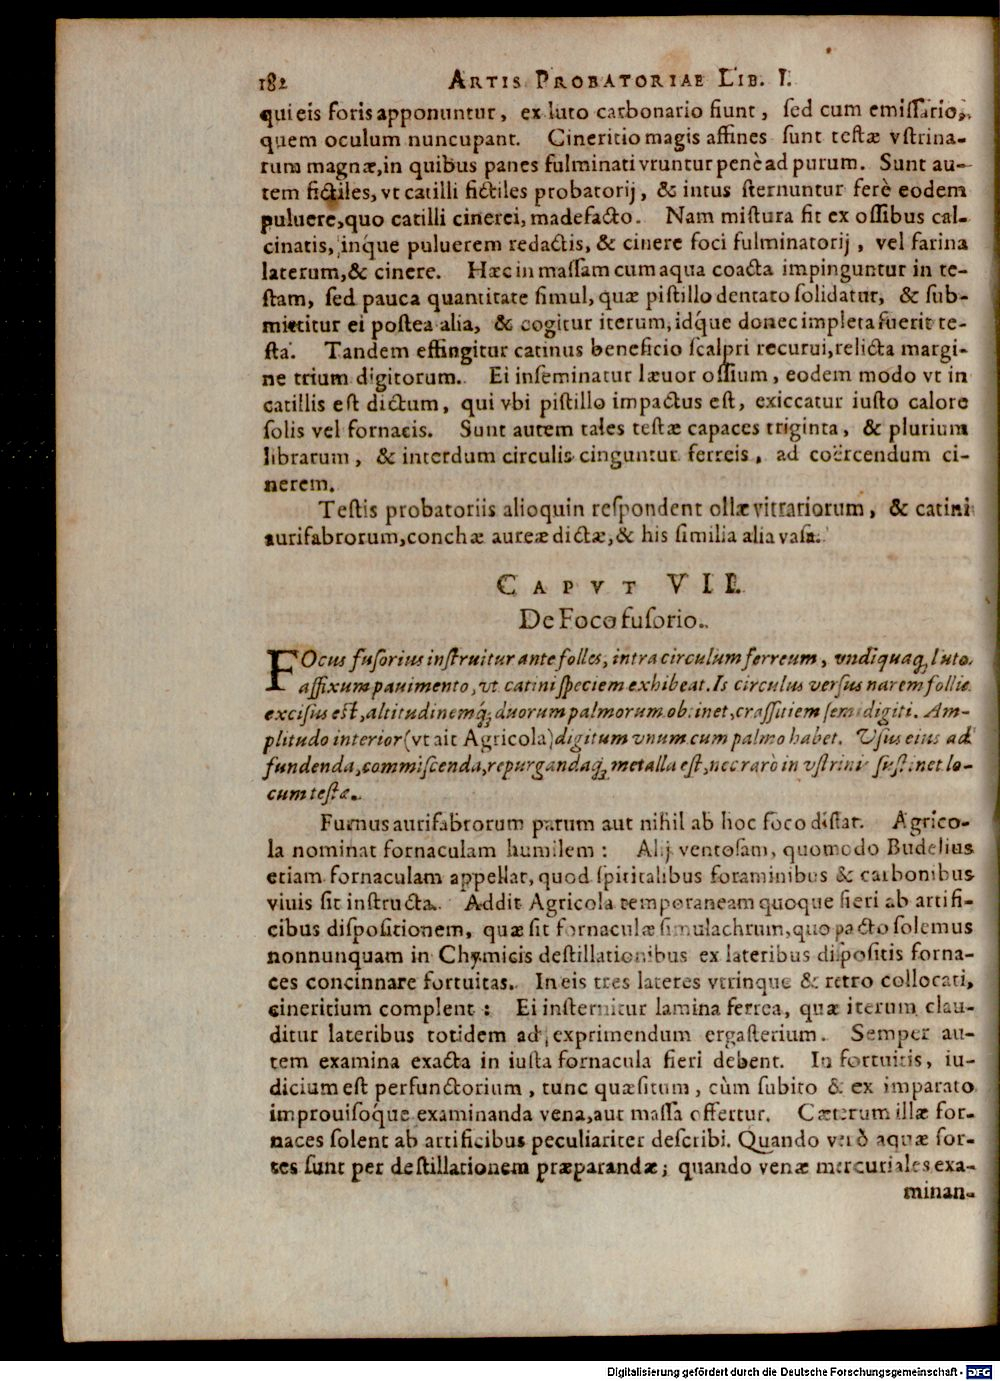 182 ARTIS PROBATORIAE LIB. I.
qui eis foris apponuntur, ex luto carbonario fiunt, ſed cum emiſſario,
quem oculum nuncupant. Cineritio magis affines ſunt teſtæ vſtrina-
rum magnæ, in quibus panes fulminati vruntur penè ad purum. Sunt au-
tem fictiles, vt catilli fictiles probatorij, & intus ſternuntur ferè eodem
puluere, quo catilli cinerei, madefacto. Nam miſtura fit ex oſſibus cal-
cinatis, inq́ue puluerem redactis, & cinere foci fulminatorij, vel farina
laterum, & cinere. Hæc in maſſam cum aqua coacta impinguntur in te-
ſtam, ſed pauca quantitate ſimul, quæ piſtillo dentato ſolidatur, & ſub-
mittitur ei poſtea alia, & cogitur iterum, idq́ue donec impleta fuerit te-
ſta. Tandem effingitur catinus beneficio ſcalpri recurui, relicta margi-
ne trium digitorum. Ei inſeminatur læuor oſſium, eodem modo vt in
catillis eſt dictum, qui vbi piſtillo impactus eſt, exiccatur iuſto calore
ſolis vel fornacis. Sunt autem tales teſtæ capaces triginta, & plurium
librarum, & interdum circulis cinguntur ferreis, ad coërcendum ci-
nerem.
Teſtis probatoriis alioquin reſpondent ollæ vitrariorum, & catini
aurifabrorum, conchæ aureæ dictæ, & his ſimilia alia vaſa.
CAPVT VII.
De Foco fuſorio.
FOcus fuſorius inſtruitur ante folles, intra circulum ferreum, vndiquaq; luto
affixum pauimento, vt catini ſpeciem exhibeat. Is circulus verſus narem follis
exciſus eſt, altitudinemq́; duorum palmorum obtinet, craſſitiem ſemidigiti. Am-
plitudo interior (vt ait Agricola) digitum vnum cum palmo habet. Vſus eius ad
fundenda, commiſcenda, repurgandaq; metalla eſt, nec rarò in vſtrinis ſuſtinet lo-
cum teſtæ.
Furnus aurifabrorum parum aut nihil ab hoc foco diſtat. Agrico-
la nominat fornaculam humilem: Alij ventoſam, quomodo Budelius
etiam fornaculam appellat, quod ſpiritalibus foraminibus & carbonibus
viuis ſit inſtructa. Addit Agricola temporaneam quoque fieri ab artifi-
cibus diſpoſitionem, quæ ſit fornaculæ ſimulachrum, quo pacto ſolemus
nonnunquam in Chymicis deſtillationibus ex lateribus diſpoſitis forna-
ces concinnare fortuitas. In eis tres lateres vtrinque & retro collocati,
cineritium complent: Ei inſternitur lamina ferrea, quæ iterum clau-
ditur lateribus totidem ad exprimendum ergaſterium. Semper au-
tem examina exacta in iuſta fornacula fieri debent. In fortuitis, iu-
dicium eſt perfunctorium, tunc quæſitum, cùm ſubito & ex imparato
improuiſoq́ue examinanda vena, aut maſſa offertur. Cæterum illæ for-
naces ſolent ab artificibus peculiariter deſcribi. Quando verò aquæ for-
tes ſunt per deſtillationem præparandæ; quando venæ mercuriales exa-
minan-
Digitalisierung gefördert durch die Deutsche Forschungsgemeinschaft - DFG